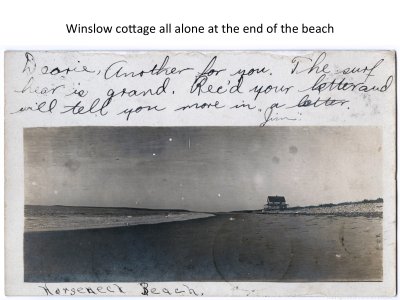 Winslow cottage all alone at the end of the beach
Dearie, Another for you. The surf
hear is grand. Rec'd your letter and
will tell you more in a letter.
Jim.
Horseneck Beach.